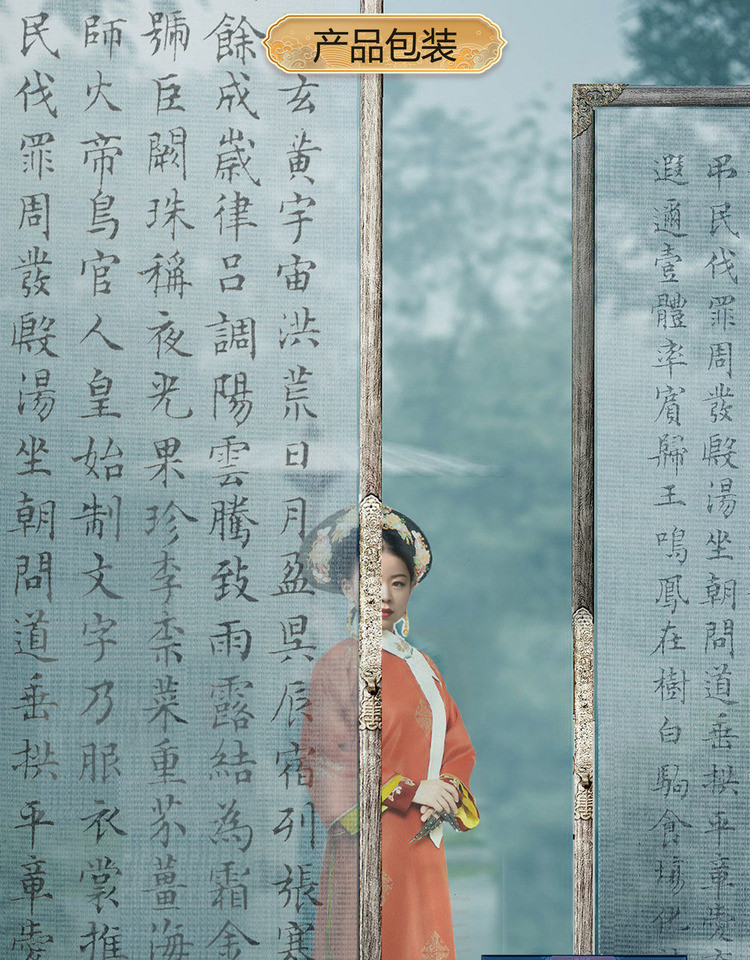 产品包装
玄黃宇宙洪荒日月盈昃辰宿列張寒
餘成歲律呂調陽雲騰致雨露結為霜金
號巨闕珠稱夜光果珍李柰菜重芥薑海
師火帝鳥官人皇始制文字乃服衣裳推
民伐罪周發殷湯坐朝問道垂拱平章愛
弔民伐罪周發殷湯坐朝問道垂拱平章愛
遐邇壹體率賓歸王鳴鳳在樹白駒食場化